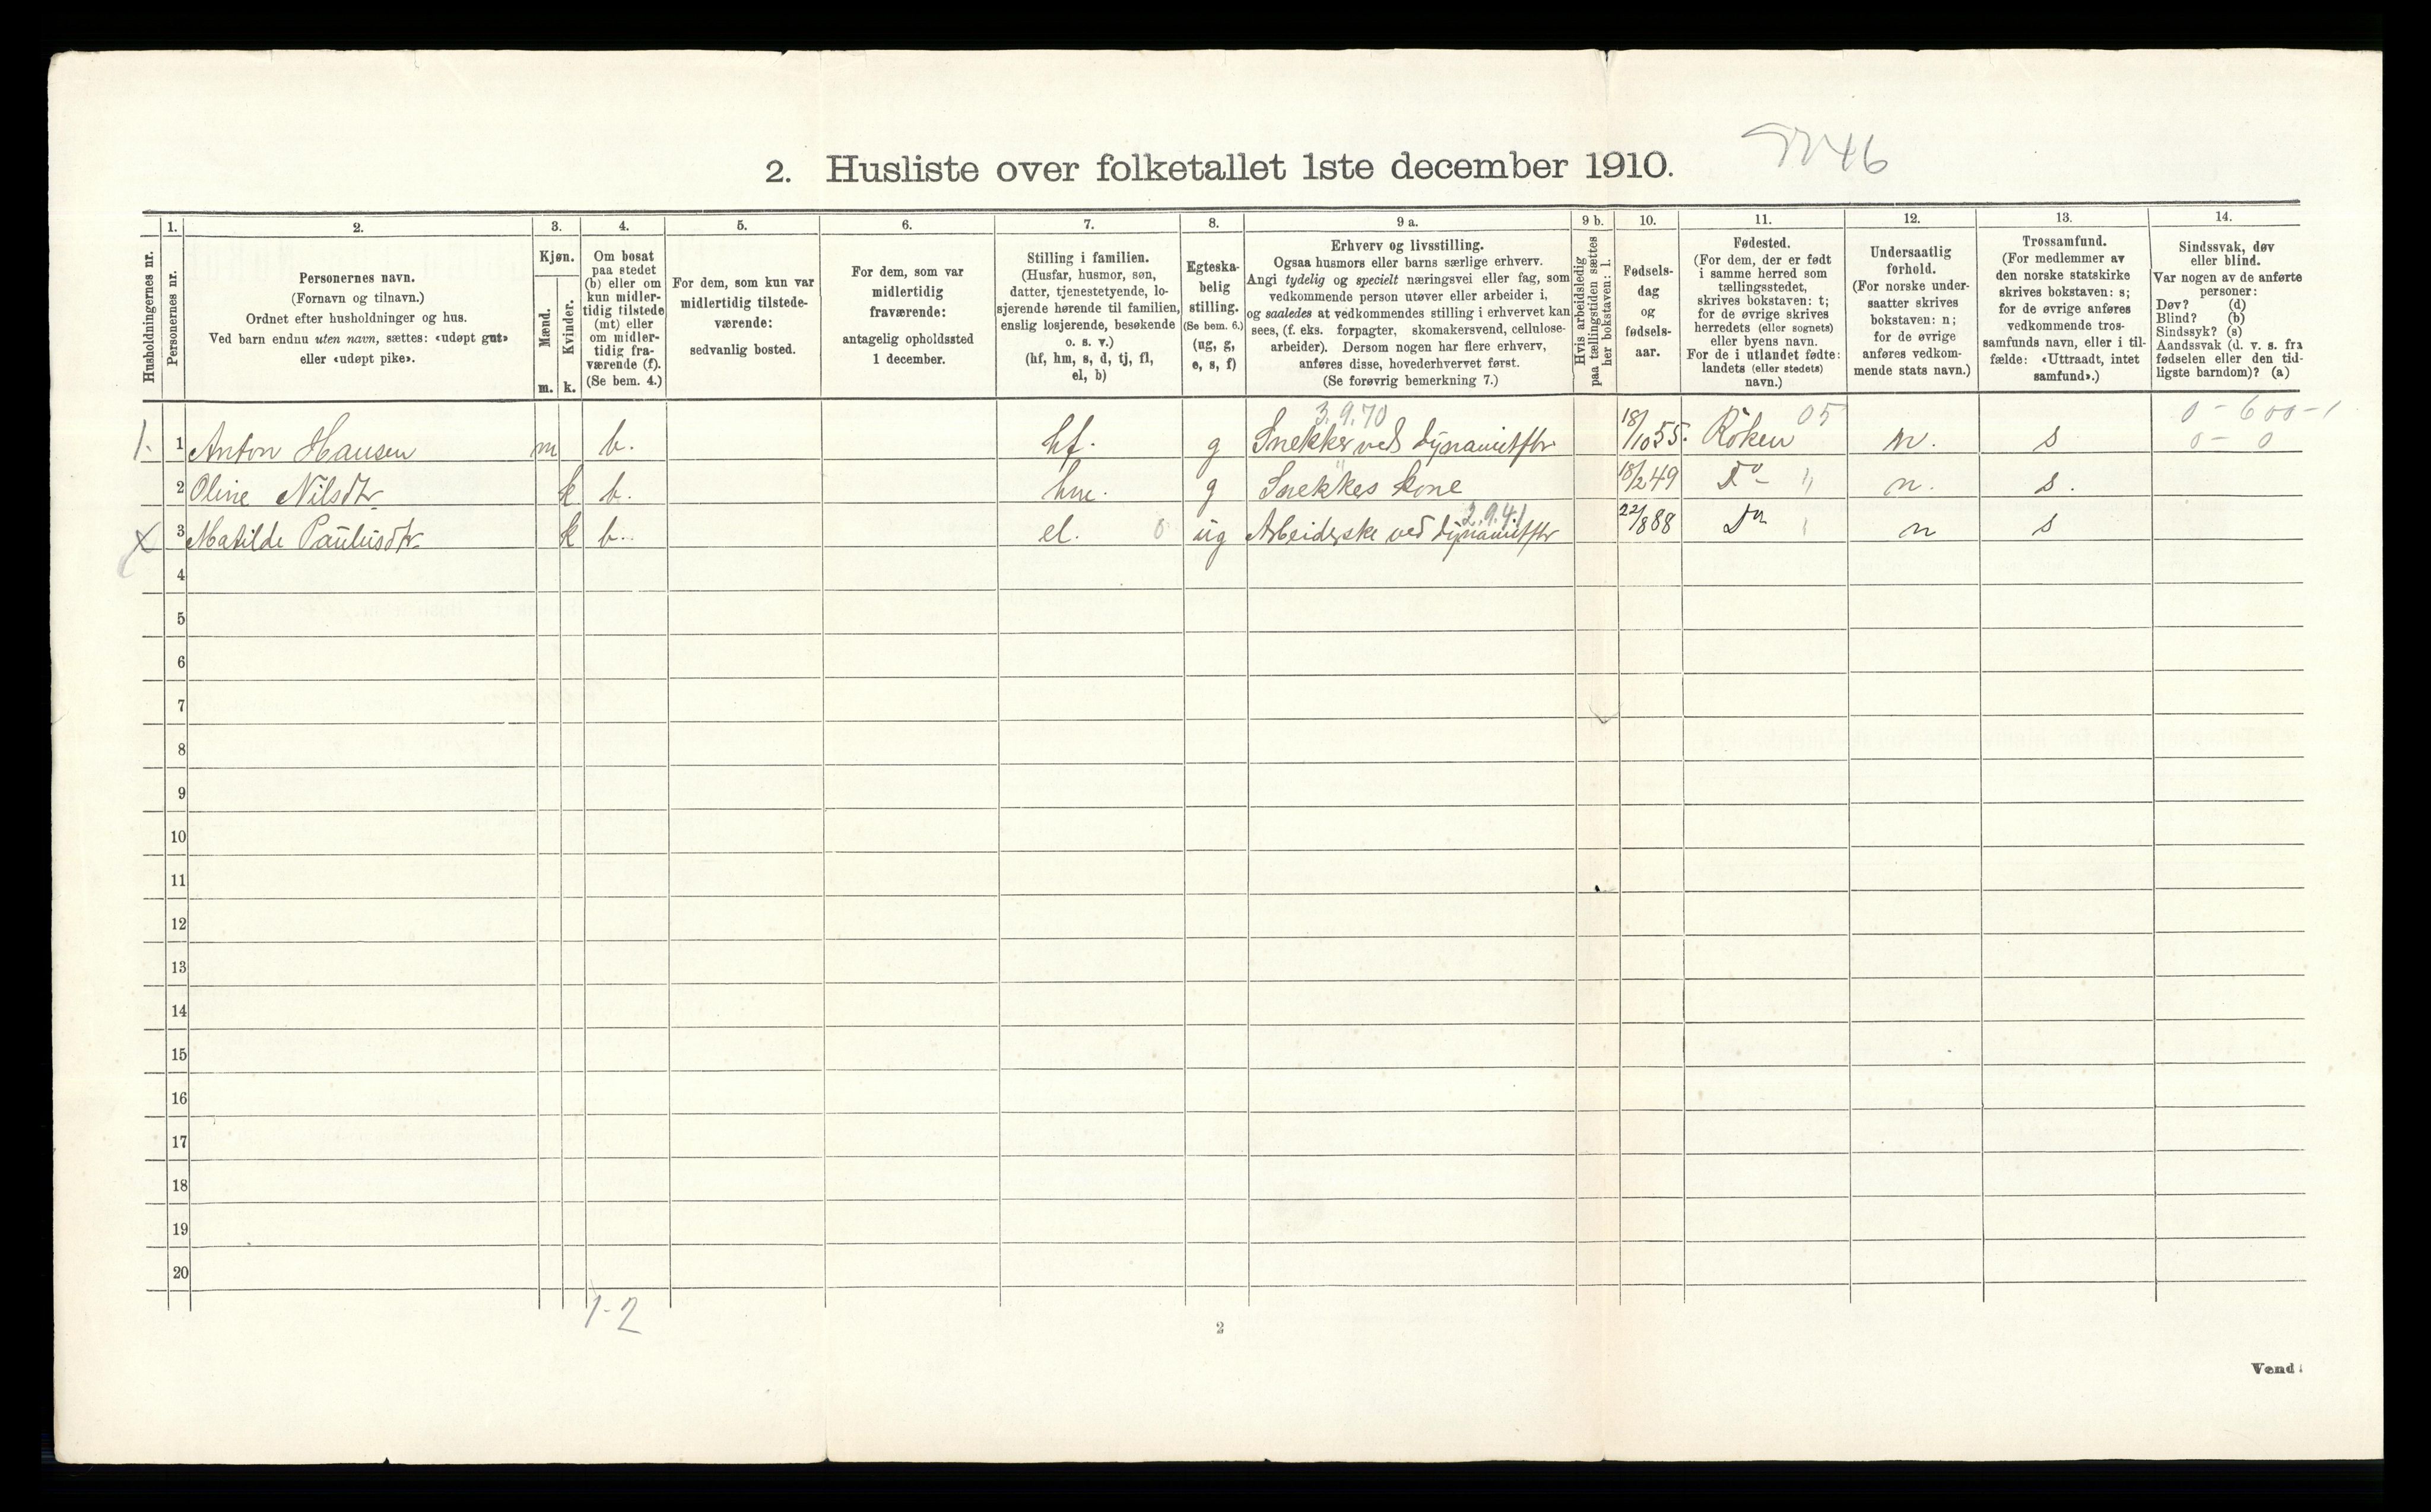 2. Husliste over folketallet 1ste december 1910.
Husholdningernes nr.
1.
Personernes nr.
2.
Personernes navn.
(Fornavn og tilnavn.)
Ordnet efter husholdninger og hus.
Ved barn endnu uten navn, sættes: «udøpt gut»
eller «udøpt pike».
3.
Kjøn.
Mænd.
Kvinder.
m. k.
4.
Om bosat
paa stedet
(b) eller om
kun midler-
tidig tilstede
(mt) eller
om midler-
tidig fra-
værende (f).
(Se bem. 4.)
5.
For dem, som kun var
midlertidig tilstede-
værende:
sedvanlig bosted.
6.
For dem, som var
midlertidig
fraværende:
antagelig opholdssted
1 december.
7.
Stilling i familien.
(Husfar, husmor, søn,
datter, tjenestetyende, lo-
sjerende hørende til familien,
enslig losjerende, besøkende
o. s. v.)
(hf, hm, s, d, tj, fl,
el, b)
8.
Egteska-
belig
stilling.
(Se bem. 6.)
(ug, g,
e, s, f)
9 a.
Erhverv og livsstilling.
Ogsaa husmors eller barns særlige erhverv.
Angi tydelig og specielt næringsvei eller fag, som
vedkommende person utøver eller arbeider i,
og saaledes at vedkommendes stilling i erhvervet kan
sees, (f. eks. forpagter, skomakersvend, cellulose-
arbeider). Dersom nogen har flere erhverv,
anføres disse, hovederhvervet først.
(Se forøvrig bemerkning 7.)
9 b.
Hvis arbeidsledig
paa tællingstiden sættes
her bokstaven: l.
10.
Fødsels-
dag
og
fødsels-
aar.
11.
Fødested.
(For dem, der er født
i samme herred som
tællingsstedet,
skrives bokstaven: t;
for de øvrige skrives
herredets (eller sognets)
eller byens navn.
For de i utlandet fødte:
landets (eller stedets)
navn.)
12.
Undersaatlig
forhold.
(For norske under-
saatter skrives
bokstaven: n;
for de øvrige
anføres vedkom-
mende stats navn.)
13.
Trossamfund.
(For medlemmer av
den norske statskirke
skrives bokstaven: s;
for de øvrige anføres
vedkommende tros-
samfunds navn, eller i til-
fælde: «Uttraadt, intet
samfund».)
14.
Sindssvak, døv
eller blind.
Var nogen av de anførte
personer:
Døv? (d)
Blind? (b)
Sindssyk? (s)
Aandssvak (d. v. s. fra
fødselen eller den tid-
ligste barndom)? (a)
3.9.70 05 0-600-1
1. 1 Anton Hansen m b. hf. g Snekker ved dynamitfbr 18/10 55. Röken n. s 0-0
2 Oline Nilsdtr k b. hm. g Snekkes kone 18/2 49 Do " n. s.
2.9.41
x 3 Matilde Paulusdtr. k b. el. 0 ug Arbeiderske ved dynamitfbr 22/8 88 Do n s
4
5
6
7
8
9
10
11
12
13
14
15
16
17
18
19
20
1-2
2
Vend!